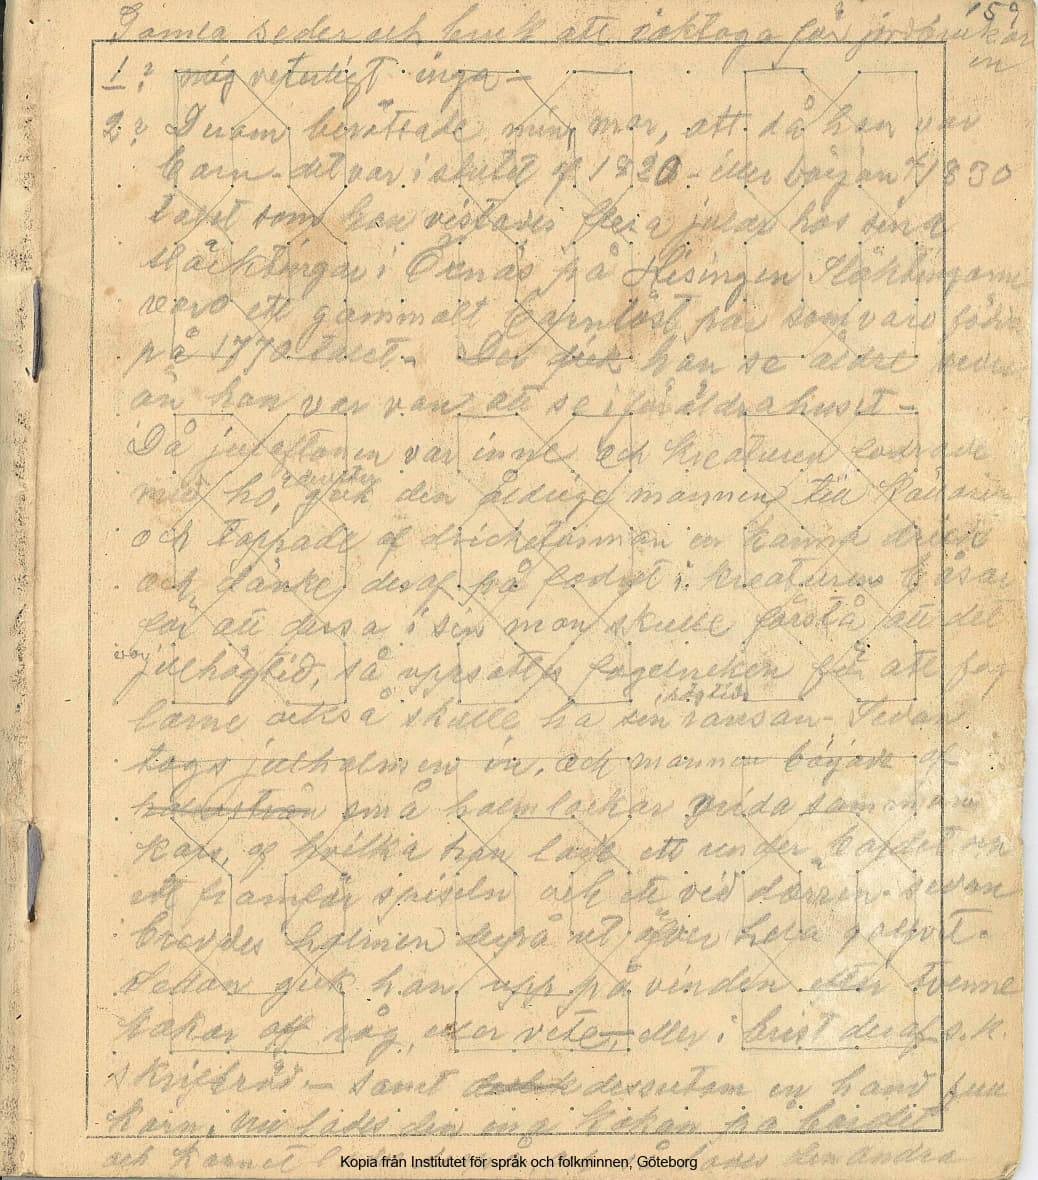 159
Gamla seder och bruk att iakttaga för jordbrukaren
1? mig veterligt inga –
2? Derom berättade min mor, att då hon var
barn – det var i slutet af 1820 – eller början af 1830
talet som hon vistades flera jular hos sina
släktingar i Öxnäs på Hisingen Släktingarne
voro ett gammalt barnlöst par som voro födda
på 1770 talet – Der fick hon se äldre seder
än hon var van att se i föräldrahuset –
Då julaftonen var inne och kreaturen fodrade
med hö, gick den åldrige mannen till källaren
och tappade af drickstunnan en kanna dricka
och stänkte deraf på fodret i kreaturens båsar
för att dessa i sin mon skulle förstå att det
var julhögtid, så uppsattes fogelneken för att fog
larne också skulle ha sin högtids ransan – Sedan
togs julhalmen in, och mannen började af
halmstrån små halmlockar vrida samman
kors, af hvilka han lade ett under bordet och
ett framför spiseln och ett vid dörren – sedan
breddes halmen derpå ut öfver hela golfvet.
Sedan gick han upp på vinden efter tvenne
kakor af råg, eller vete – eller i brist deraf s.k.
skriftbröd – samt dessutom en hand full
korn, nu lades den ena kakan på bordet
och kornet den andra
Kopia från Institutet för språk och folkminnen, Göteborg